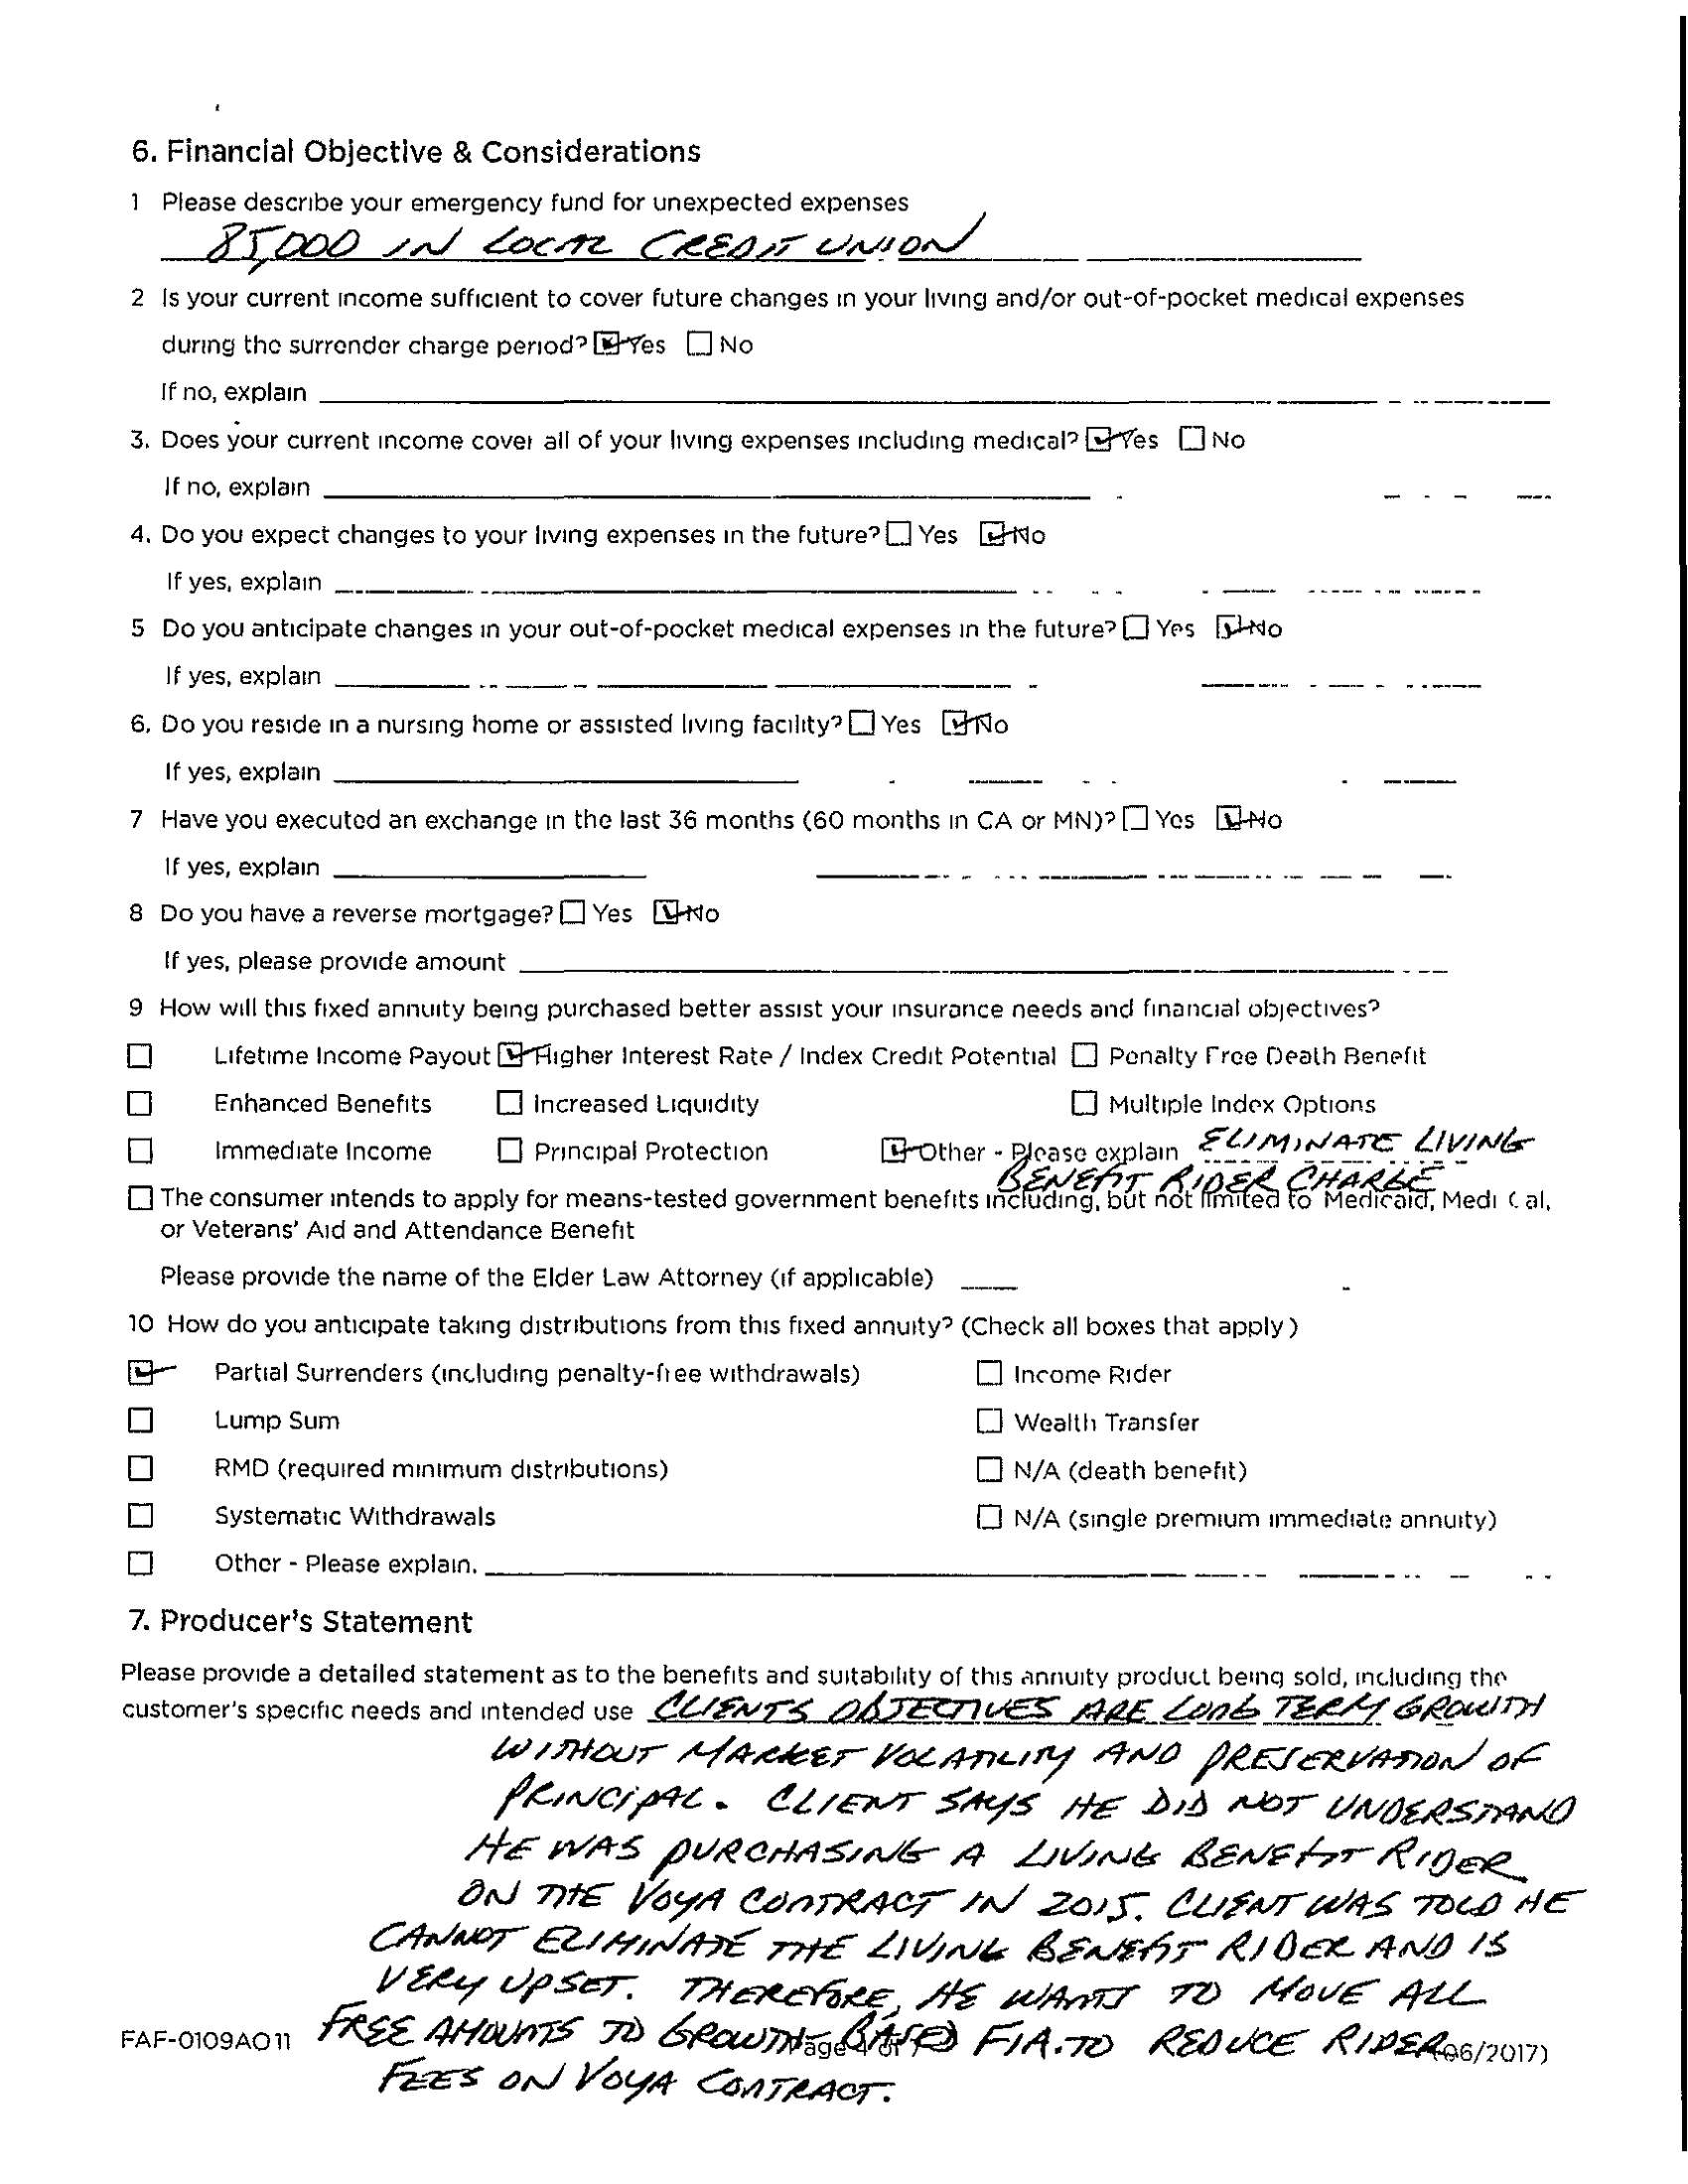 6. Financial Objective & Considerations
1 Please describe your emergency fund for unexpected expenses
85,000 IN LOCAL CREDIT UNION
2 Is your current income sufficient to cover future changes in your living and/or out-of-pocket medical expenses
during the surrender charge period? Yes No
If no, explain
3. Does your current income cover all of your living expenses including medical? Yes No
If no, explain
4. Do you expect changes to your living expenses in the future? Yes No
If yes, explain
5 Do you anticipate changes in your out-of-pocket medical expenses in the future? Yes No
If yes, explain
6. Do you reside in a nursing home or assisted living facility? Yes No
If yes, explain
7 Have you executed an exchange in the last 36 months (60 months in CA or MN)? Yes No
If yes, explain
8 Do you have a reverse mortgage? Yes No
If yes, please provide amount
9 How will this fixed annuity being purchased better assist your insurance needs and financial objectives?
Lifetime Income Payout Higher Interest Rate / Index Credit Potential Penalty Free Death Benefit
Enhanced Benefits Increased Liquidity Multiple Index Options
Immediate Income Principal Protection Other - Please explain ELIMINATE LIVING
BENEFIT RIDER CHARGE
The consumer intends to apply for means-tested government benefits including, but not limited to Medicaid, Medi Cal,
or Veterans' Aid and Attendance Benefit
Please provide the name of the Elder Law Attorney (if applicable)
10 How do you anticipate taking distributions from this fixed annuity? (Check all boxes that apply)
Partial Surrenders (including penalty-free withdrawals) Income Rider
Lump Sum Wealth Transfer
RMD (required minimum distributions) N/A (death benefit)
Systematic Withdrawals N/A (single premium immediate annuity)
Other - Please explain.
7. Producer's Statement
Please provide a detailed statement as to the benefits and suitability of this annuity product being sold, including the
customer's specific needs and intended use CLIENTS OBJECTIVES ARE LONG TERM GROWTH
WITHOUT MARKET VOLATILITY AND PRESERVATION OF
PRINCIPAL. CLIENT SAYS HE DID NOT UNDERSTAND
HE WAS PURCHASING A LIVING BENEFIT RIDER
ON THE VOYA CONTRACT IN 2015. CLIENT WAS TOLD HE
CANNOT ELIMINATE THE LIVING BENEFIT RIDER AND IS
VERY UPSET. THEREFORE, HE WANTS TO MOVE ALL
FREE AMOUNTS TO GROWTH BASED FIA. TO REDUCE RIDER
FAF-0109AO 11 (06/2017)
FEES ON VOYA CONTRACT.